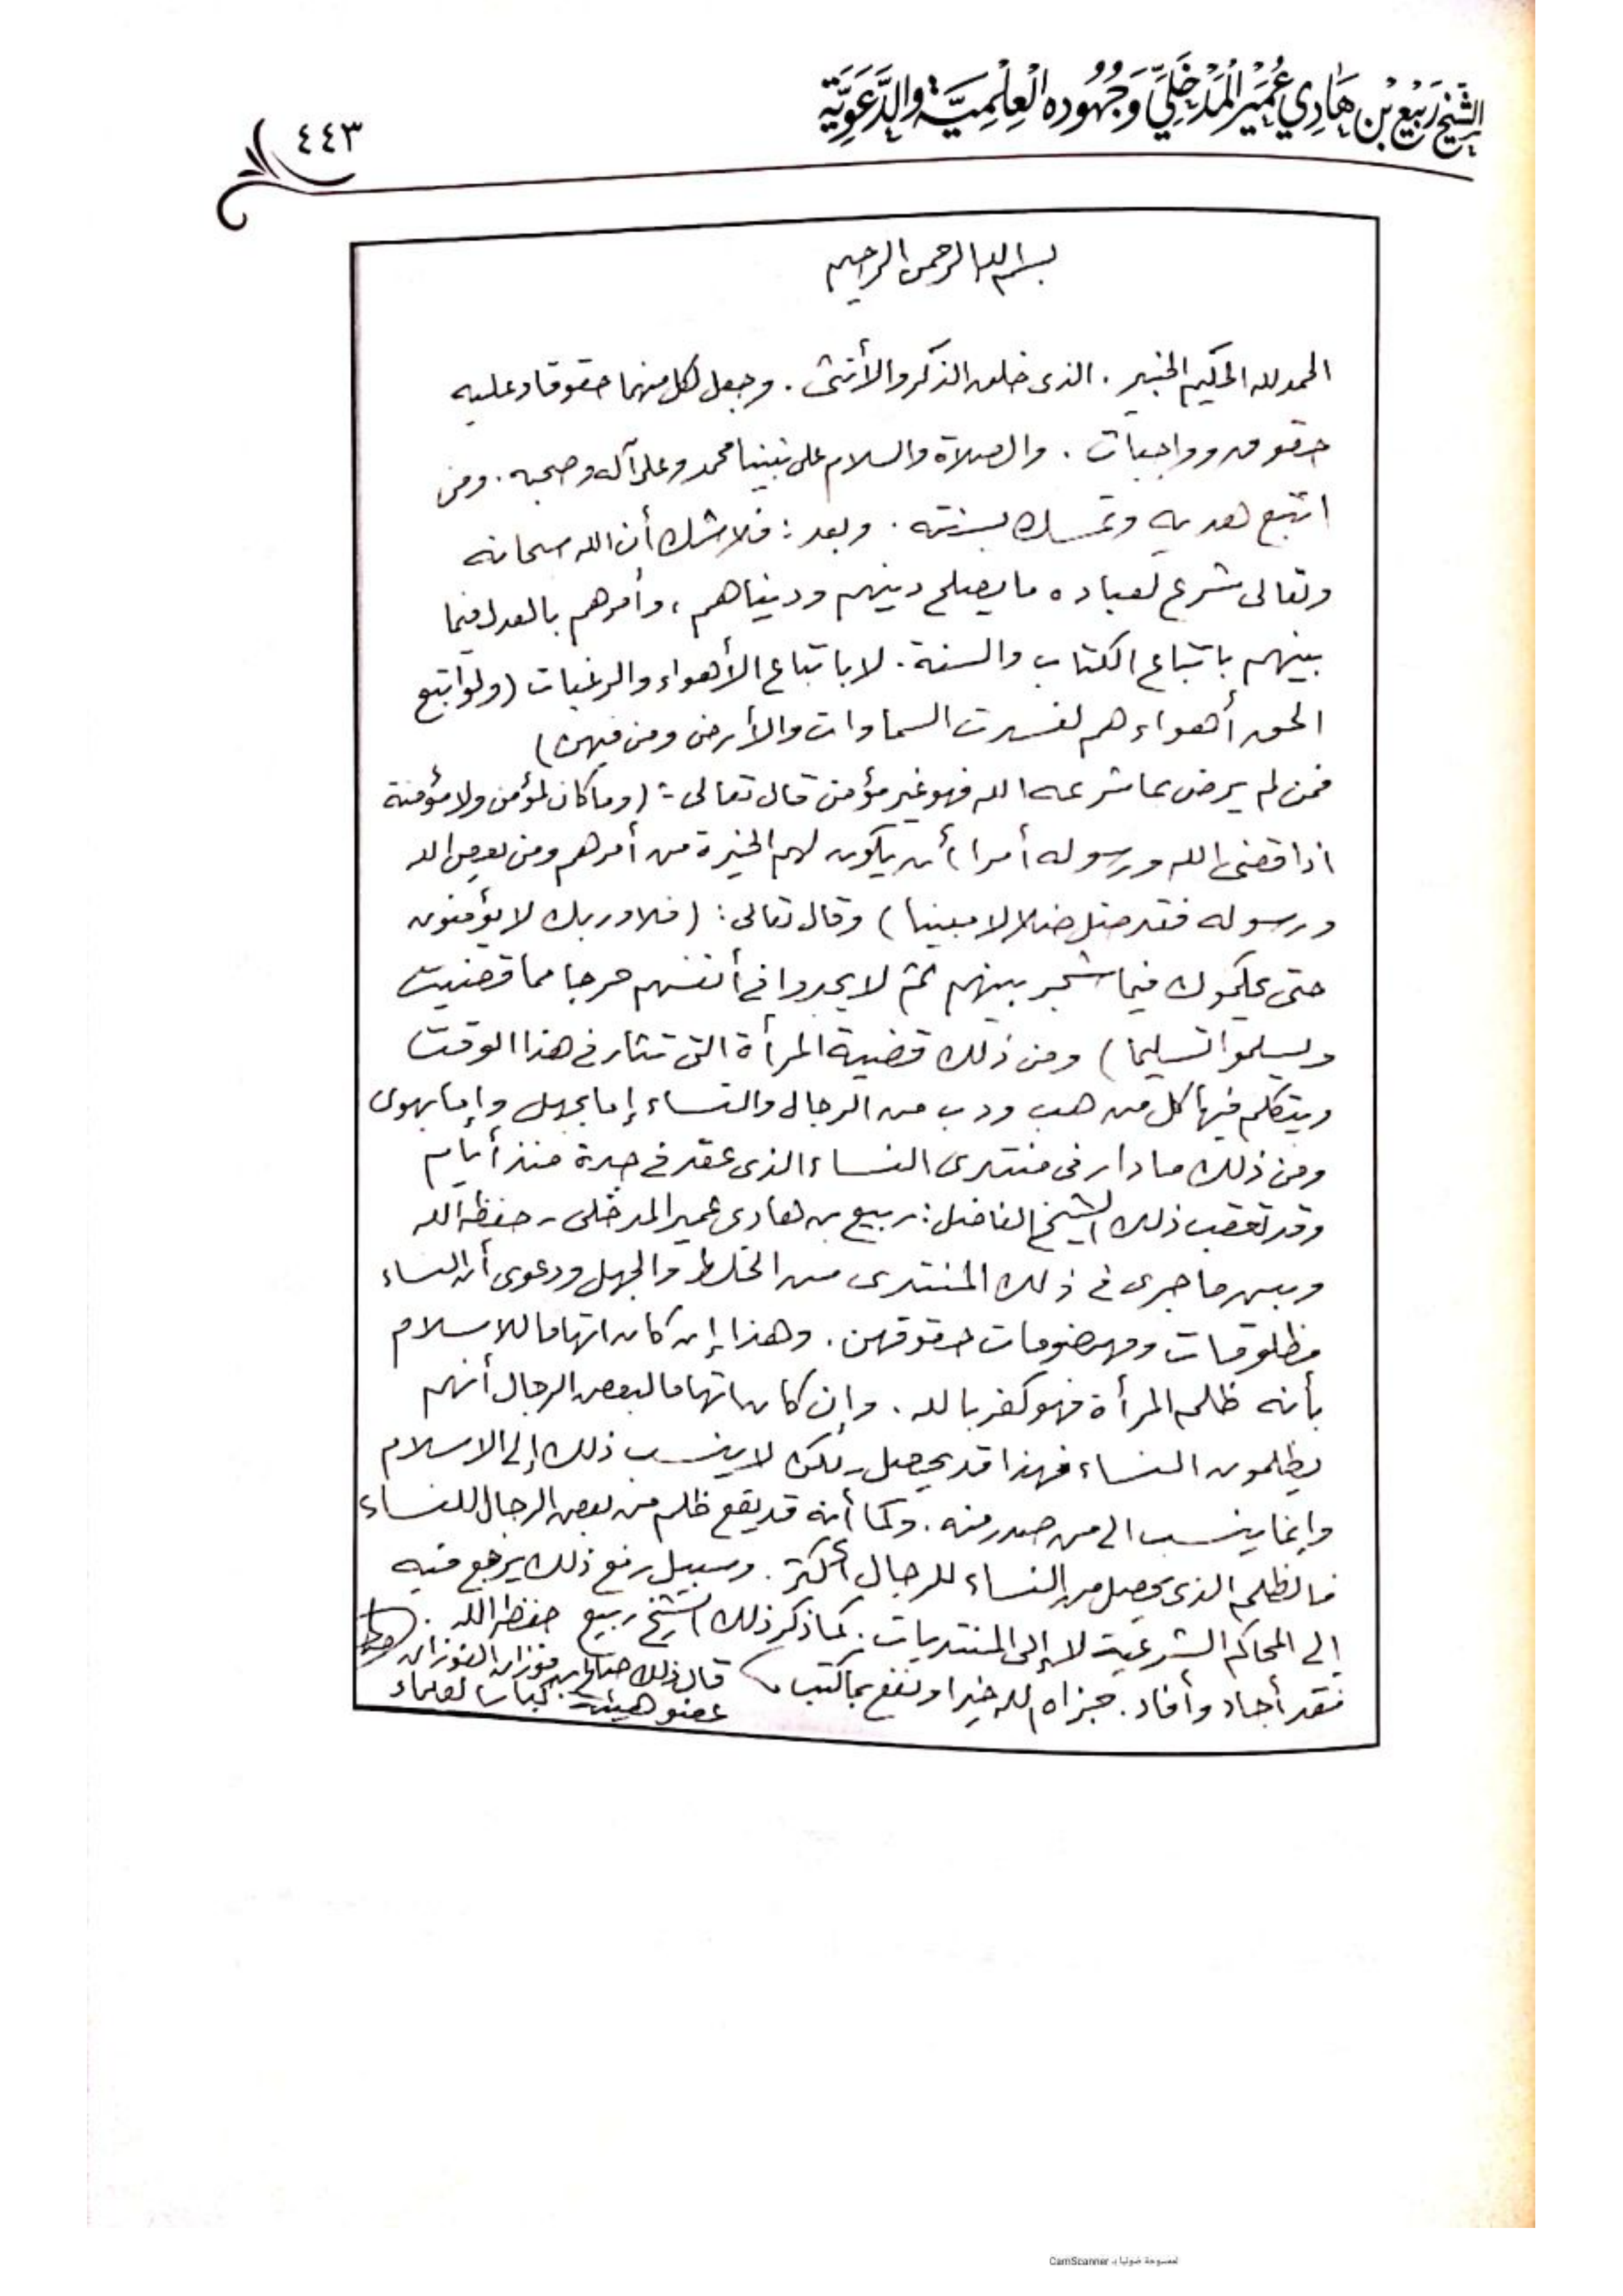 الشَّيْخ رَبِيْع بْن هَادِي عُمَيْر الْمَدْخَلِيّ وَجُهُوده الْعِلْمِيَّة والدَّعَوِيَّة
٤٤٣
بسم الله الرحمن الرحيم
الحمد لله الحكيم الخبير . الذى خلق الذكر والأنثى . وجعل لكل منهما حقوقا وعليه
حقوق وواجبات . والصلاة والسلام على نبينا محمد وعلى آله وصحبه . ومن
اتبع هديه وتمسك بسنته . وبعد : فلا شك أن الله سبحانه
وتعالى شرع لعباده ما يصلح دينهم ودنياهم ، وأمرهم بالعدل فيما
بينهم باتباع الكتاب والسنة . لا باتباع الأهواء والرغبات (ولو اتبع
الحق أهواءهم لفسدت السماوات والأرض ومن فيهن)
فمن لم يرض بما شرعه الله فهو غير مؤمن قال تعالى : (وما كان لمؤمن ولا مؤمنة
اذا قضى الله ورسوله أمرا أن يكون لهم الخيرة من أمرهم ومن يعص الله
ورسوله فقد ضل ضلالا مبينا) وقال تعالى : (فلا وربك لا يؤمنون
حتى يحكموك فيما شجر بينهم ثم لا يجدوا في أنفسهم حرجا مما قضيت
ويسلموا تسليما) ومن ذلك قضية المرأة التى تثار في هذا الوقت
ويتكلم فيها كل من هب ودب من الرجال والنساء إما بجهل وإما بهوى
ومن ذلك ما دار فى منتدى النساء الذى عقد في جدة منذ أيام
وقد تعقب ذلك الشيخ الفاضل : ربيع بن هادى عمير المدخلى - حفظه الله
وبين ما جرى في ذلك المنتدى من الخلط والجهل ودعوى أن النساء
مظلومات ومهضومات حقوقهن . وهذا إن كان اتهاما للاسلام
بأنه ظلم المرأة فهو كفر بالله . وإن كان اتهاما لبعض الرجال أنهم
يظلمون النساء فهذا قد يحصل لكن لا ينسب ذلك إلى الاسلام
وإنما ينسب الى من صدر منه . وكما أنه قد يقع ظلم من بعض الرجال للنساء
فالظلم الذى يحصل من النساء للرجال أكثر . وسبيل رفع ذلك يرجع فيه
إلى المحاكم الشرعية لا إلى المنتديات . كما ذكر ذلك الشيخ ربيع حفظه الله .
فقد أجاد وأفاد . فجزاه الله خيرا ونفع بما كتب
قال ذلك صالح بن فوزان الفوزان
عضو هيئة كبار العلماء
الممسوحة ضوئيا بـ CamScanner